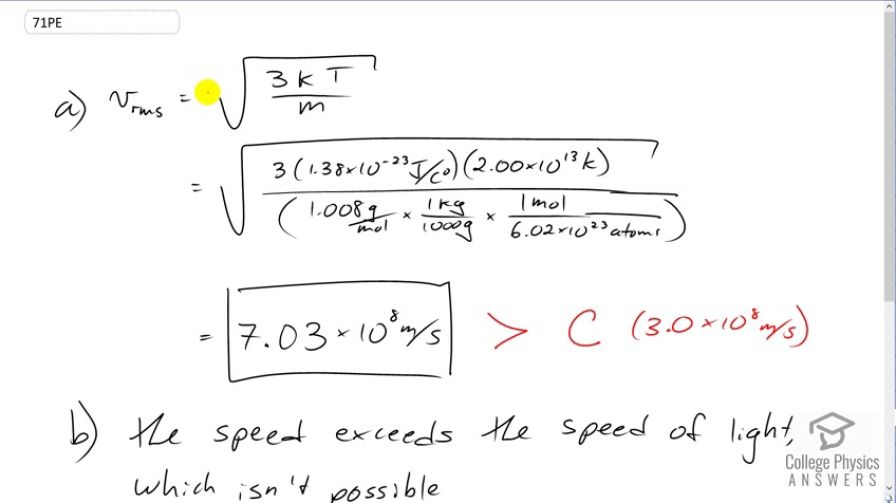 71PE
a) v_rms = √(3kT/m)
= √(3(1.38×10^-23 J/C°)(2.00×10^13 K) / (1.008g/mol × 1kg/1000g × 1mol/6.02×10^23 atoms))
= 7.03×10^8 m/s > C (3.0×10^8 m/s)
b) the speed exceeds the speed of light,
which isn't possible
College Physics
ANSWERS